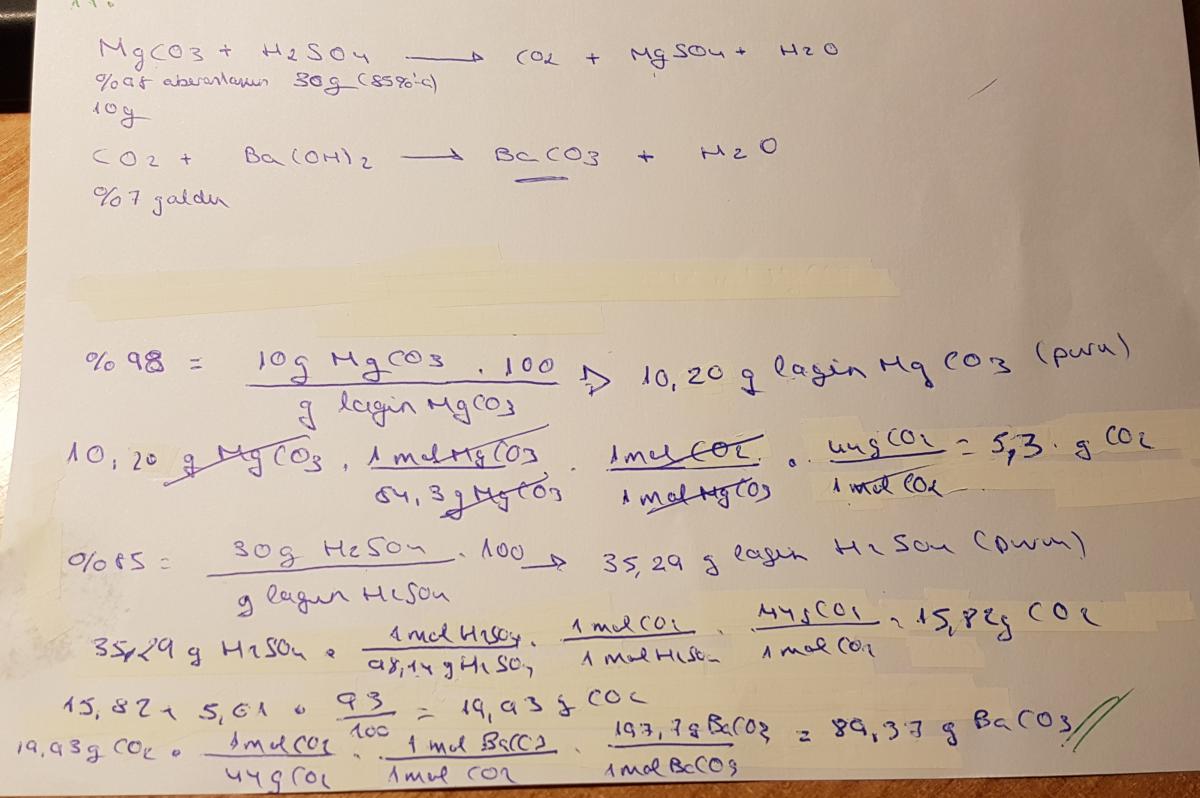 MgCO3 + H2SO4 → CO2 + MgSO4 + H2O
%98 aberastasun 30g (85%'a)
10g
CO2 + Ba(OH)2 → BaCO3 + H2O
%7 galdu
%98 = 10g MgCO3 . 100 / g lagin MgCO3 ⇒ 10,20 g lagin MgCO3 (puru)
10,20 g MgCO3 . 1mol MgCO3 / 84,3g MgCO3 . 1mol CO2 / 1mol MgCO3 . 44gCO2 / 1mol CO2 = 5,3 g CO2
%85 = 30g H2SO4 . 100 / g lagin H2SO4 → 35,29 g lagin H2SO4 (puru)
35,29 g H2SO4 . 1mol H2SO4 / 98,14 g H2SO4 . 1molCO2 / 1mol H2SO4 . 44gCO2 / 1molCO2 = 15,82g CO2
15,82 + 5,61 . 93 / 100 = 19,93 g CO2
19,93g CO2 . 1molCO2 / 44gCO2 . 1mol BaCO3 / 1mol CO2 . 197,7g BaCO3 / 1mol BaCO3 = 89,37 g BaCO3